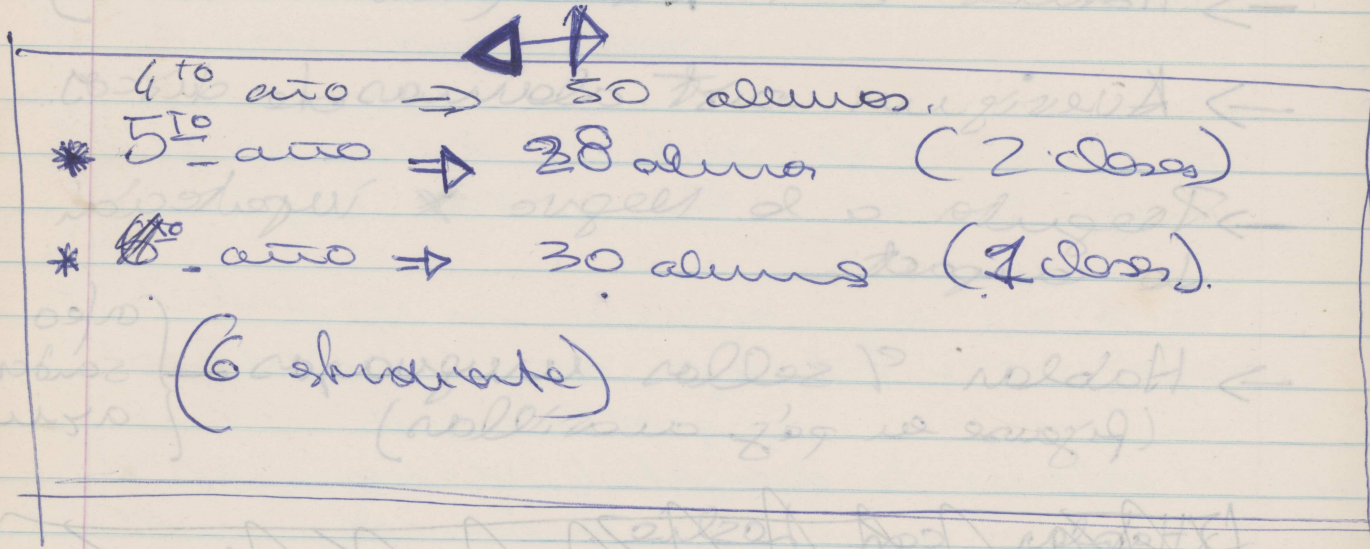 4to año ⇒ 50 alumnos.
* 5to año ⇒ 28 alumnos (2 clases)
* 6to año ⇒ 30 alumnos (1 clases).
(6 estudiante)